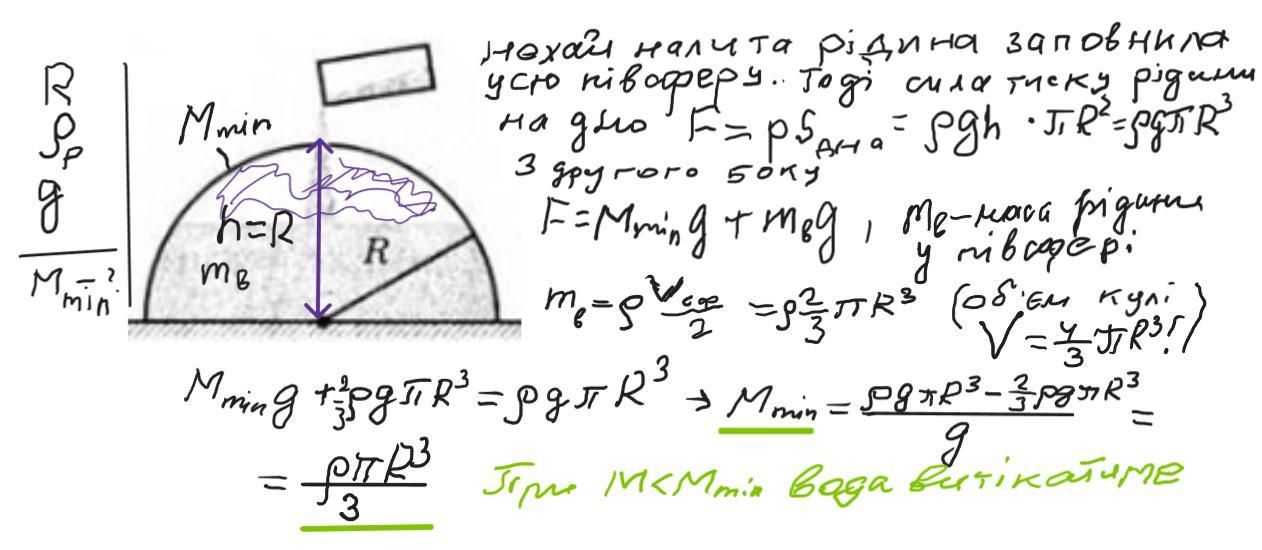 R
ρр
g
Mmin-?
Mmin
h=R
mв
R
нехай налита рідина заповнила
усю півсферу.. Тоді сила тиску рідини
на дно F = pSдна = ρgh · πR² = ρgπR³
З другого боку
F = Mmin g + mвg, mв-маса рідини
у півсфері
mв = ρ Vсф/2 = ρ 2/3 πR³ (об'єм кулі
V = 4/3 πR³!)
Mmin g + 2/3 ρgπR³ = ρgπR³ → Mmin = (ρgπR³ - 2/3 ρgπR³)/g =
= ρπR³/3 При M<Mmin вода витікатиме